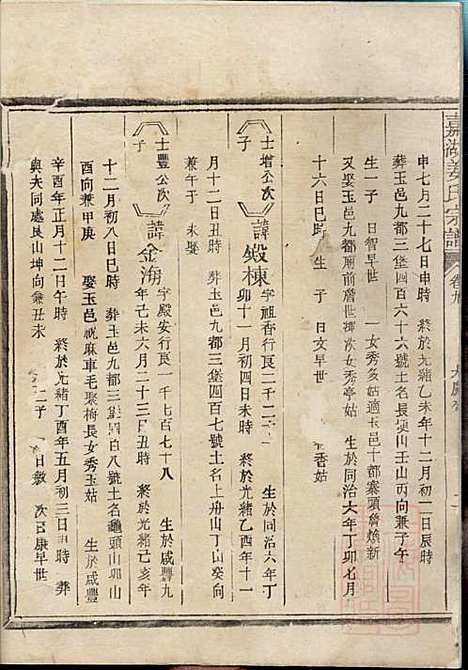 嘉湖姜氏宗譜 卷九
申七月二十七日申時 終於光緒乙未年十二月初一日辰時
葬玉邑九都三堡四百六十六號土名長垅山壬山丙向兼子午
生一子 日智早世 一女秀多姑適玉邑十都寨頭詹煥新
又娶玉邑九都廟前詹世椰次女秀亭姑 生於同治六年丁卯七月
十六日巳時 生 子 日文早世 香姑
士增公次子 諱煅棟 字祖香行良一千二 生於同治六年丁
卯十一月初四日未時 終於光緒乙酉年十一
月十二日丑時 葬玉邑九都三堡四百七號土名上舟山丁山癸向
兼午子 未娶
士豐公次子 諱金海 字殿安行良一千七百七十八 生於咸豐九
年己未六月二十三日丑時 終於光緒己亥年
十二月初八日巳時 葬玉邑九都三堡四百八號土名龜頭山卯山
酉向兼甲庚 娶玉邑祝麻車毛聚梅長女秀玉姑 生於咸豐
辛酉年正月十二日午時 終於光緒丁酉年五月初三日 時 葬
與夫同處艮山坤向兼丑未 子 日敬 次日康早世